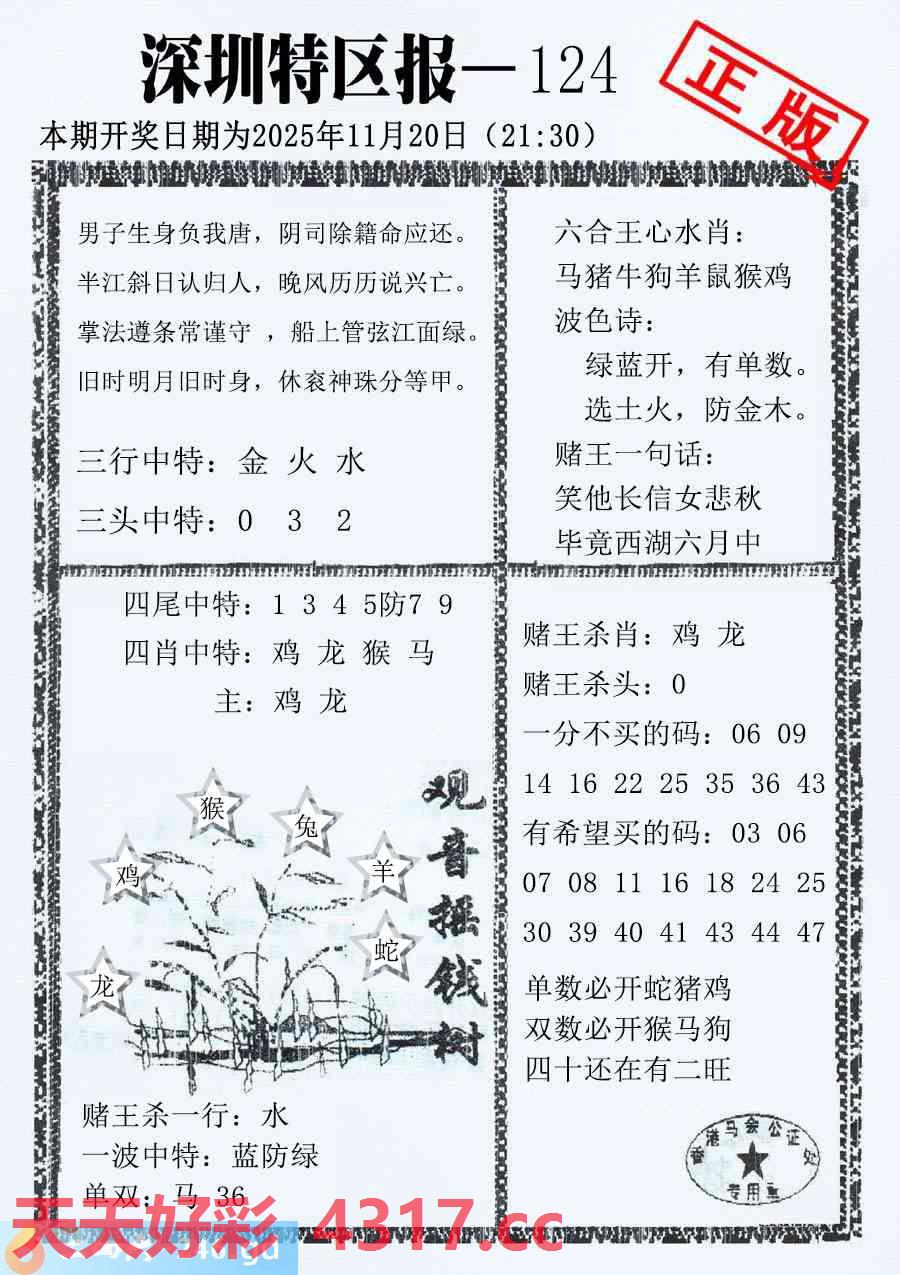 深圳特区报—124
正版
本期开奖日期为2025年11月20日（21:30）
男子生身负我唐，阴司除籍命应还。
半江斜日认归人，晚风历历说兴亡。
掌法遵条常谨守 ，船上管弦江面绿。
旧时明月旧时身，休衮神珠分等甲。
三行中特：金 火 水
三头中特：0 3 2
六合王心水肖：
马猪牛狗羊鼠猴鸡
波色诗：
绿蓝开，有单数。
选土火，防金木。
赌王一句话：
笑他长信女悲秋
毕竟西湖六月中
四尾中特：1 3 4 5防7 9
四肖中特：鸡 龙 猴 马
主：鸡 龙
猴
兔
鸡
羊
蛇
龙
观音摇钱树
赌王杀一行：水
一波中特：蓝防绿
单双：马 36
赌王杀肖：鸡 龙
赌王杀头：0
一分不买的码：06 09
14 16 22 25 35 36 43
有希望买的码：03 06
07 08 11 16 18 24 25
30 39 40 41 43 44 47
单数必开蛇猪鸡
双数必开猴马狗
四十还在有二旺
香港马会公证处
专用章
天天好彩 4317.cc